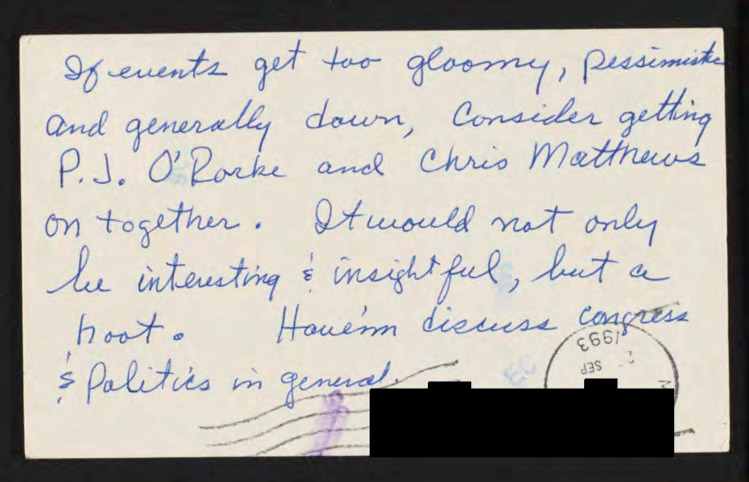 If events get too gloomy, pessimistic
and generally down, Consider getting
P.J. O'Rorke and Chris Matthews
on together. It would not only
be interesting & insightful, but a
hoot. Have'm discuss congress
& Politics in general.
SEP
1993